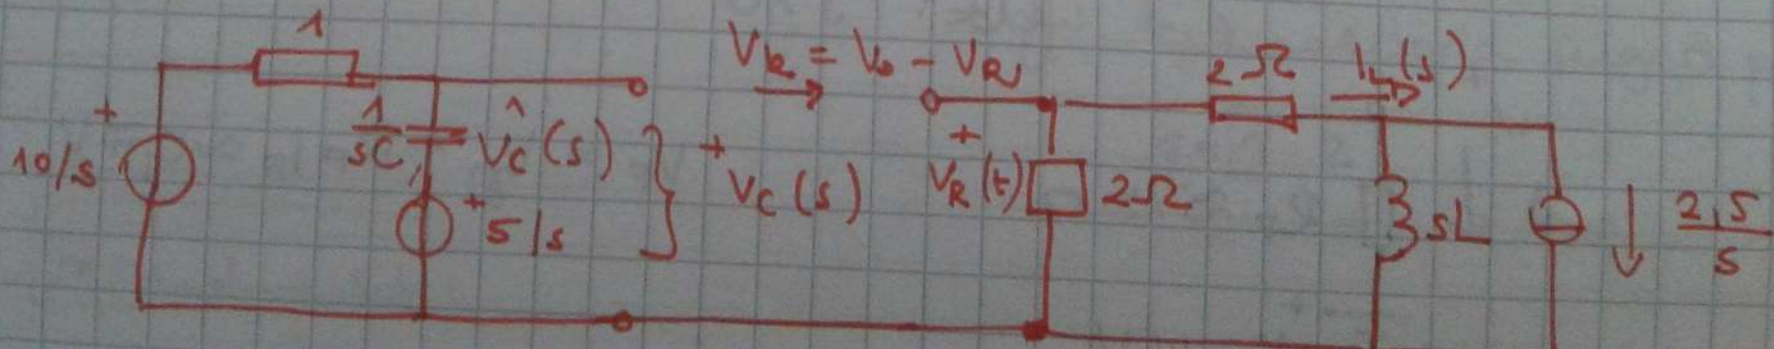 1
+
10/s
1/sC
V̂c(s)
+
5/s
+
Vc(s)
Vk = Vo - VR
+
VR(t)
2Ω
2Ω
IL(s)
sL
2,5/s